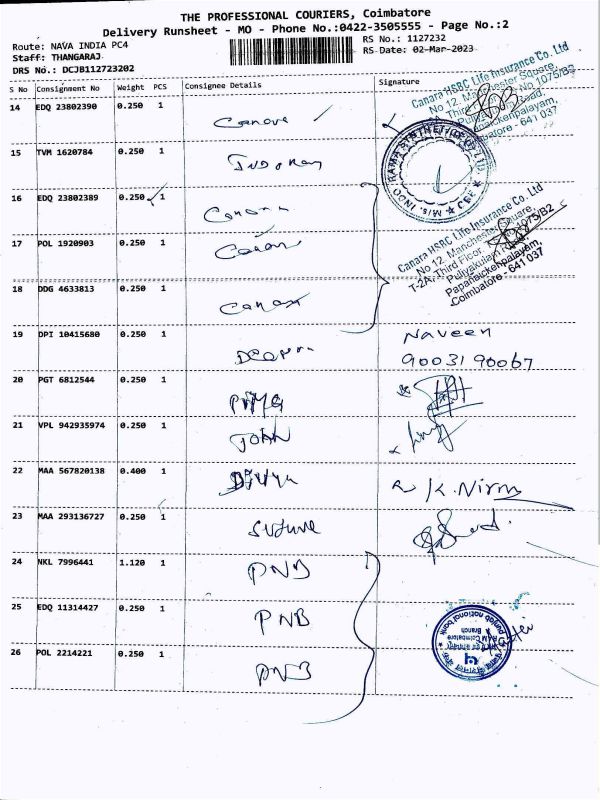 THE PROFESSIONAL COURIERS, Coimbatore
Delivery Runsheet - MO - Phone No.:0422-3505555 - Page No.:2
Route: NAVA INDIA PC4
RS No.: 1127232
Staff: THANGARAJ
RS Date: 02-Mar-2023
DRS No.: DCJB112723202
S No Consignment No Weight PCS Consignee Details Signature
14 EDQ 23802390 0.250 1
Canara HSBC Life Insurance Co. Ltd
No 12, Manchester Square,
15 TVM 1620784 0.250 1
16 EDQ 23802389 0.250 1
17 POL 1920903 0.250 1
Canara HSBC Life Insurance Co. Ltd
No 12, Manchester Square,
T-2A, Third Floor,
Puliyakulam
Pappanaickenpalayam,
Coimbatore - 641 037
18 DDG 4633813 0.250 1
19 DPI 10415680 0.250 1 Naveen
90031 90067
20 PGT 6812544 0.250 1
21 VPL 942935974 0.250 1 John
22 MAA 567820138 0.400 1 Divya K. Nirm
23 MAA 293136727 0.250 1
24 NKL 7996441 1.120 1 PNB
25 EDQ 11314427 0.250 1 PNB
26 POL 2214221 0.250 1 PNB
punjab national bank
Branch